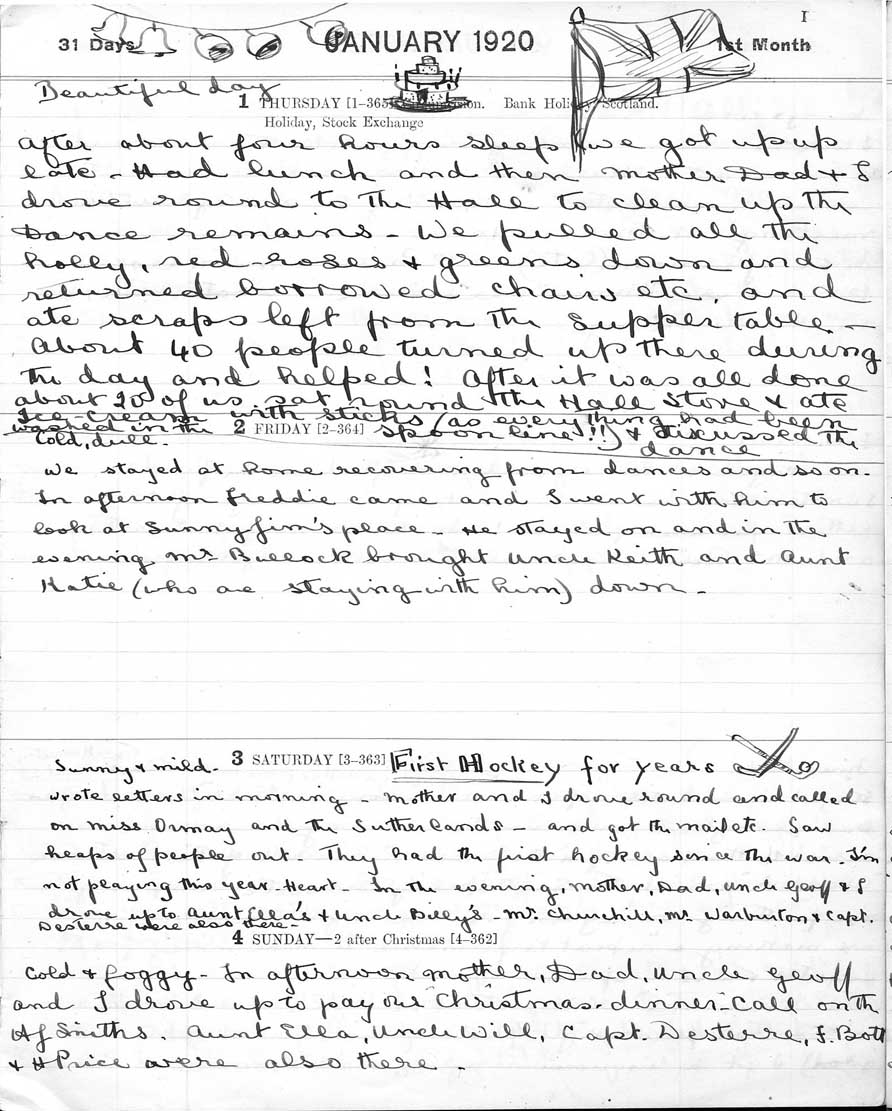 I
31 Days JANUARY 1920 1st Month
Beautiful day
1 THURSDAY [1-365] Bank Holiday Scotland.
Holiday, Stock Exchange
After about four hours sleep we got up up
late - Had lunch and then Mother Dad & I
drove round to the Hall to clean up the
Dance remains - We pulled all the
holly, red-roses & greens down and
returned borrowed chairs etc, and
ate scraps left from the supper table -
About 40 people turned up there during
the day and helped! After it was all done
about 20 of us sat round the Hall stove & ate
Ice-cream with sticks (as everything had been
washed in the spoon line!!) & discussed the
dance
2 FRIDAY [2-364]
Cold, dull.
We stayed at home recovering from dances and so on.
In afternoon Freddie came and I went with him to
look at Sunny Jim's place - He stayed on and in the
evening Mr Bullock brought Uncle Keith and Aunt
Katie (who are staying with him) down -
Sunny & mild. 3 SATURDAY [3-363] First Hockey for years
Wrote letters in morning - Mother and I drove round and called
on Miss Ormay and the Sutherlands - and got the mail etc. Saw
heaps of people out - They had the first hockey since the war. I'm
not playing this year - Heart - In the evening, Mother, Dad, Uncle Geoff & I
drove up to Aunt Ella's & Uncle Billy's - Mr. Churchill, Mr. Warburton & Capt.
Desterre were also there -
4 SUNDAY—2 after Christmas [4-362]
Cold & foggy - In afternoon Mother, Dad, Uncle Geoff
and I drove up to pay our Christmas-dinner-call on th
AJ Smiths. Aunt Ella, Uncle Will, Capt. Desterre, F. Bott
& H Price were also there -